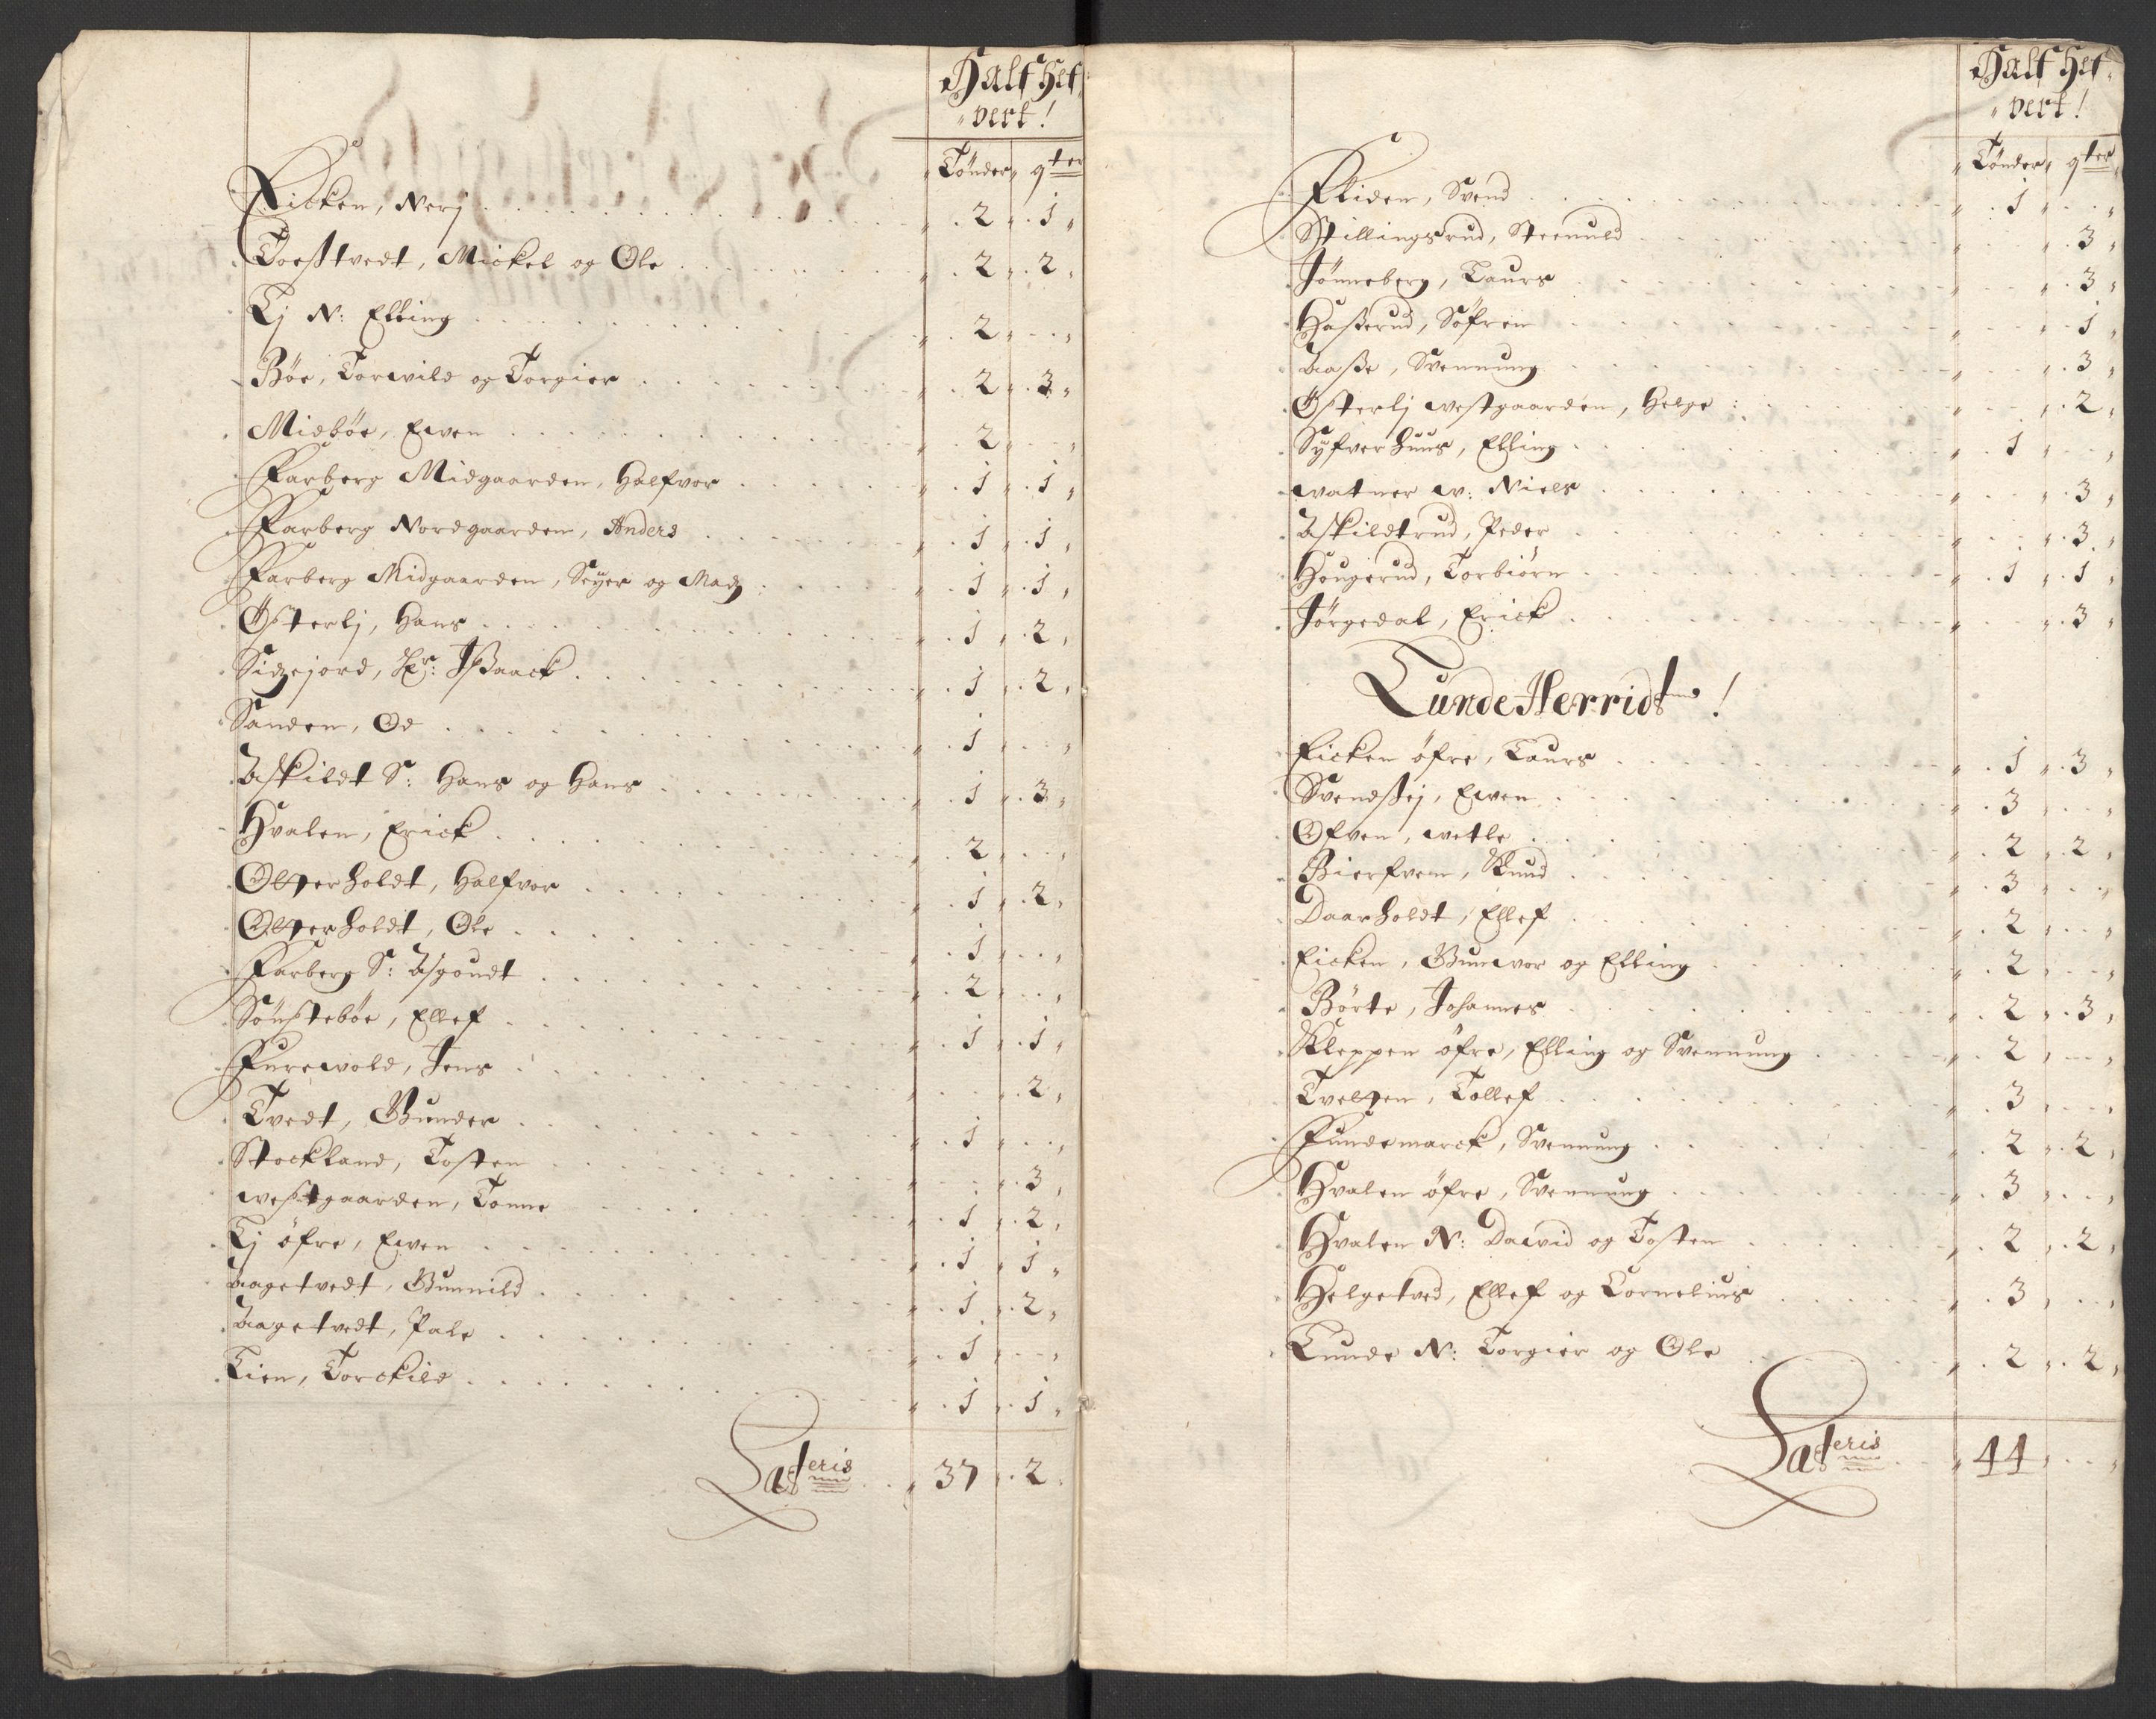 Half Hef
vert!
Tønder qter
Eicken, Nerj 2 1
Toeßtvedt, Mickel og Ole 2 2
Lj N: Elling 2
Böe, Torwild og Torgier 2 3
Midböe, Ewen 2
Farberg Midgaarden, Halfvor 1 1
Farberg Nordgaarden, Anders 1 1
Farberg Midgaarden, Seyer og Madz 1 1
Österlj, Hans 1 2
Sidzejord, Hr: Ißaack 1 2
Sanden, Od 1
Askildt S: Hans og Hans 1 3
Hvalen, Erick 2
Olterholdt, Halfvor 1 2
Olterholdt, Ole 1
Farberg S: Asgoudt 2
Sönsteböe, Ellef 1 1
Furewold, Jens 2
Tvedt, Gunder 1
Stockland, Tosten 3
westgaarden, Tonne 1 2
Lj öfre, Ewen 1 1
Aagetvedt, Gunnild 1 2
Aagetvedt, Pale 1
Lien, Torckild 1 1
Lateris 37 2
Half Hef
vert!
Tønder qter
Fliden, Svend 1
Stillingsrud, Steenuld 3
Jönneberg, Laurs 3
Haßerud, Söfren 1
Aaße, Svennung 3
Österlj westgaarden, Helge 2
Syfverhuus, Elling 1
watner w: Niels 3
Askildtrud, Peder 3
Hougerud, Torbiörn 1 1
Jörgedal, Erick 3
Lunde Herridt!
Eicken öfre, Laurs 1 3
Svendßej, Ewen 3
Ofven, wetle 2 2
Bierfven, Knud 3
Daarholdt, Ellef 2
Eicken, Gunwor og Elling 2
Börte, Johannes 2 3
Kleppen öfre, Elling og Svennung 2
Tvelten, Tollef 3
Fundemarck, Svennung 2 2
Hvalen öfre, Svennung 3
Hvalen N: Dawid og Tosten 2 2
Helgetved, Ellef og Cornelius 3
Lunde N: Torgier og Ole 2 2
Lateris 44